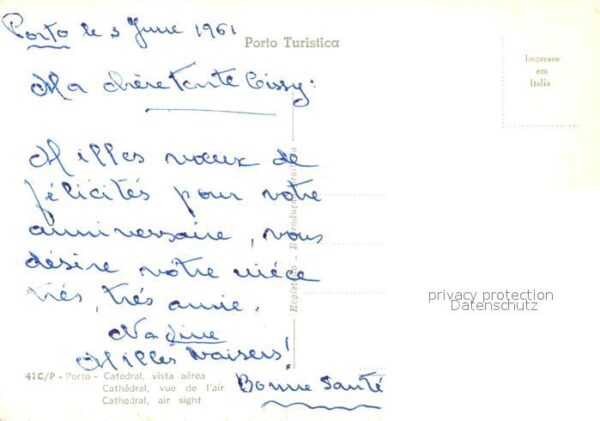 Porto le 3 June 1961
Porto Turistica
Impresso
em
Italia
Ma chère tante Cissy:
Milles vœux de
félicités pour votre
anniversaire, vous
désire vôtre niéce
trés, trés amie.
Nadine
Milles baisers!
Bonne Santé
Registado - Reproduçao Proibida
privacy protection
Datenschutz
41C/P - Porto - Catedral, vista aérea
Cathédral, vue de l'air
Cathedral, air sight